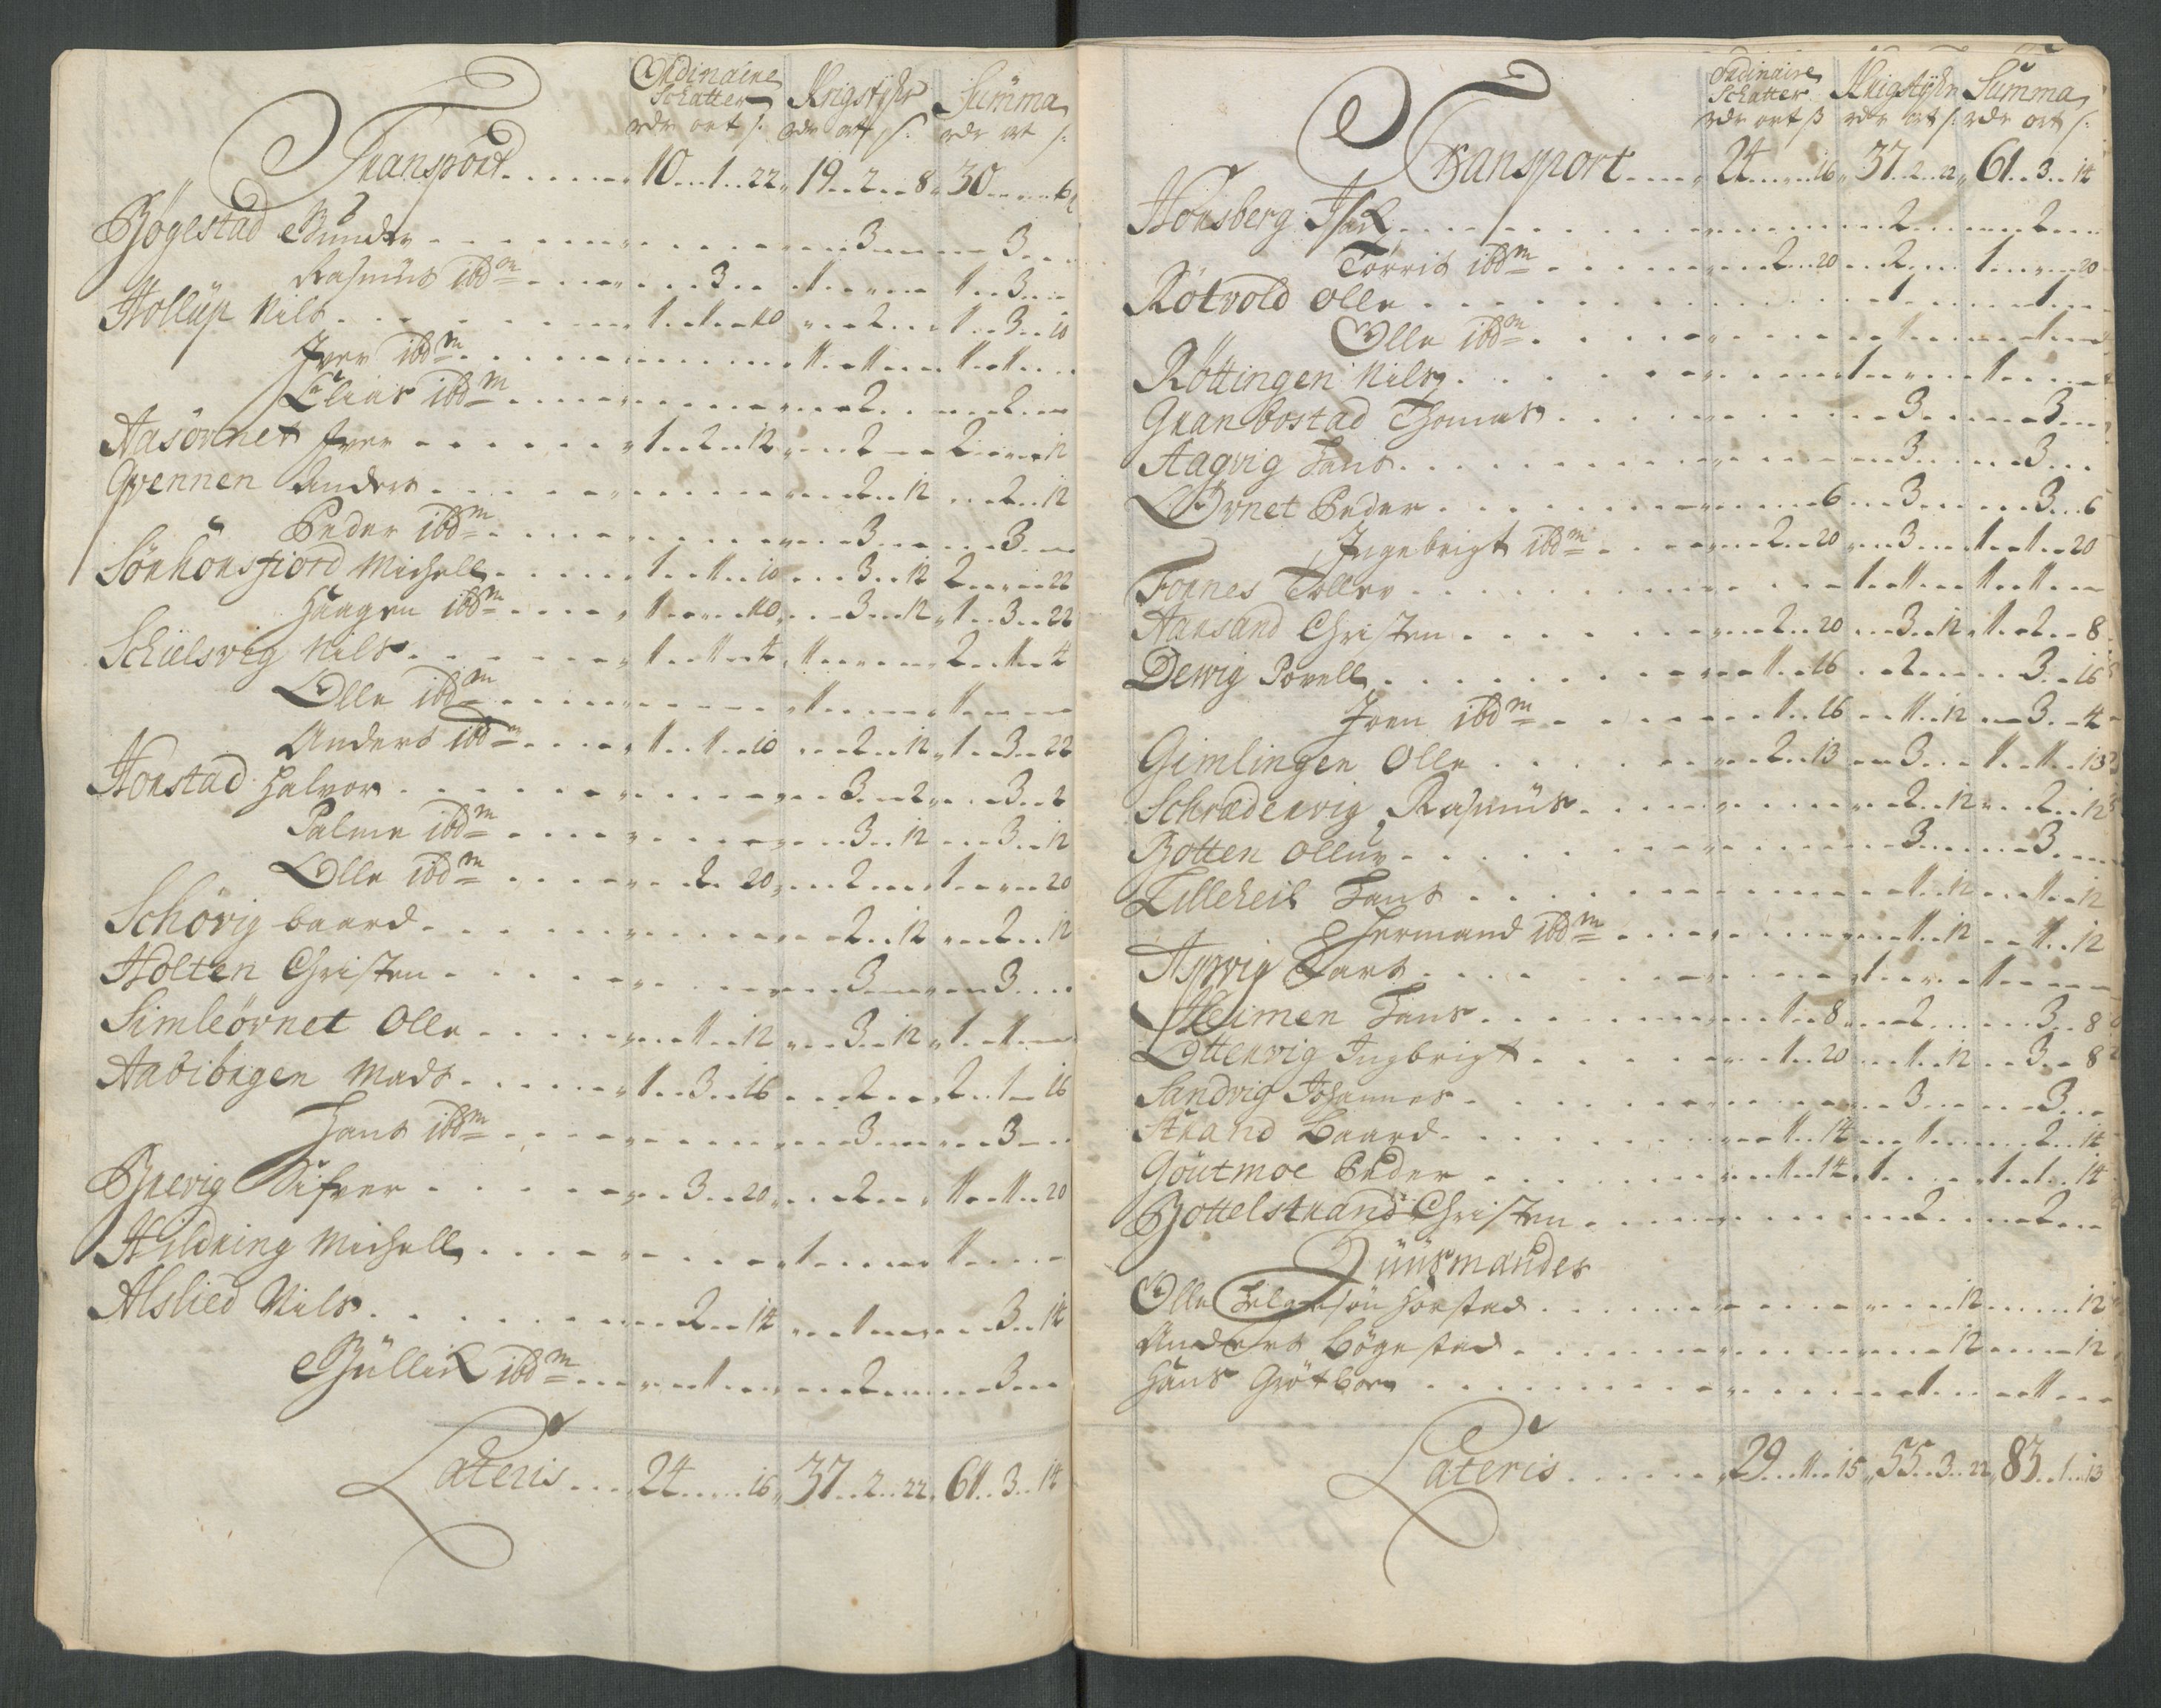 Ordinaire
Schatter Krigstyhr Summa
rdr ort s: rdr ort s: rdr ort s:
Transport 10 1 22 19 2 8 30 6
Bögestad Gunder 3 3
Rasmus ibdm 3 1 1 3
Hollup Nils 1 1 10 2 1 3 10
Iver ibdm 1 1 1 1
Elias ibdm 2 2
Aasörnet Iver 1 2 12 2 2 12
Qvennen Anders 2 12 2 12
Peder ibdm 3 3
Sörhorsfiord Michell 1 1 10 3 12 2 22
Haagen ibdm 1 10 3 12 1 3 22
Schielsvig Nils 1 1 4 1 2 1 4
Olle ibdm 1 1
Anders ibdm 1 1 10 2 12 1 3 22
Horstad Halvor 3 2 3 2
Palme ibdm 3 12 3 12
Olle ibdm 2 20 2 1 20
Schörig baard 2 12 2 12
Holten Christen 3 3
Simleörnet Olle 1 12 3 12 1 1
Aabibegen Mads 1 3 16 2 2 1 16
Hans ibdm 3 3
Brevig Sifver 3 20 2 1 1 20
Hildring Michell 1 1
Alslied Nils 2 14 1 3 14
Gullik ibdm 1 2 3
Lateris 24 16 37 2 22 61 3 14
Ordinaire
Schatter Krigstyhr Summa
rdr ort s rdr ort s: rdr ort s:
Transport 24 16 37 2 22 61 3 14
Horsberg Isak 2 2
Torris ibdm 2 20 2 1 20
Rötvold Olle 1 1
Olle ibdm 1 1
Röttingen Nils 1 1
Granbostad Thomas 3 3
Aagvig Hans 3 3
Örnet Peder 6 3 3 6
Ingebrigt ibdm 2 20 3 1 1 20
Fornes Toller 1 1 1 1
Aarsand Christen 2 20 3 12 1 2 8
Dewig Povell 1 16 2 3 16
Iren ibdm 1 16 1 12 3 4
Gimlingen Olle 2 13 3 1 1 13
Schrædervig Rasmus 2 12 2 12
Botten Olluv 3 3
Lilleheil Hans 1 12 1 12
Hermand ibdm 1 12 1 12
Lars 1 1
Heimen Hans 1 8 2 3 8
Ottervig Ingbrigt 1 20 1 12 3 8
Sandvig Johannes 3 3
Strand Baard 1 14 1 2 14
Göutmoe Peder 1 14 1 1 1 14
Bottelstrand Christen 2 2
Huusmænder
Olle Helgesön Horstad 12 12
Anders Bögestad 12 12
Hans Grötborn 1 1
Lateris 29 1 15 55 3 22 83 1 13